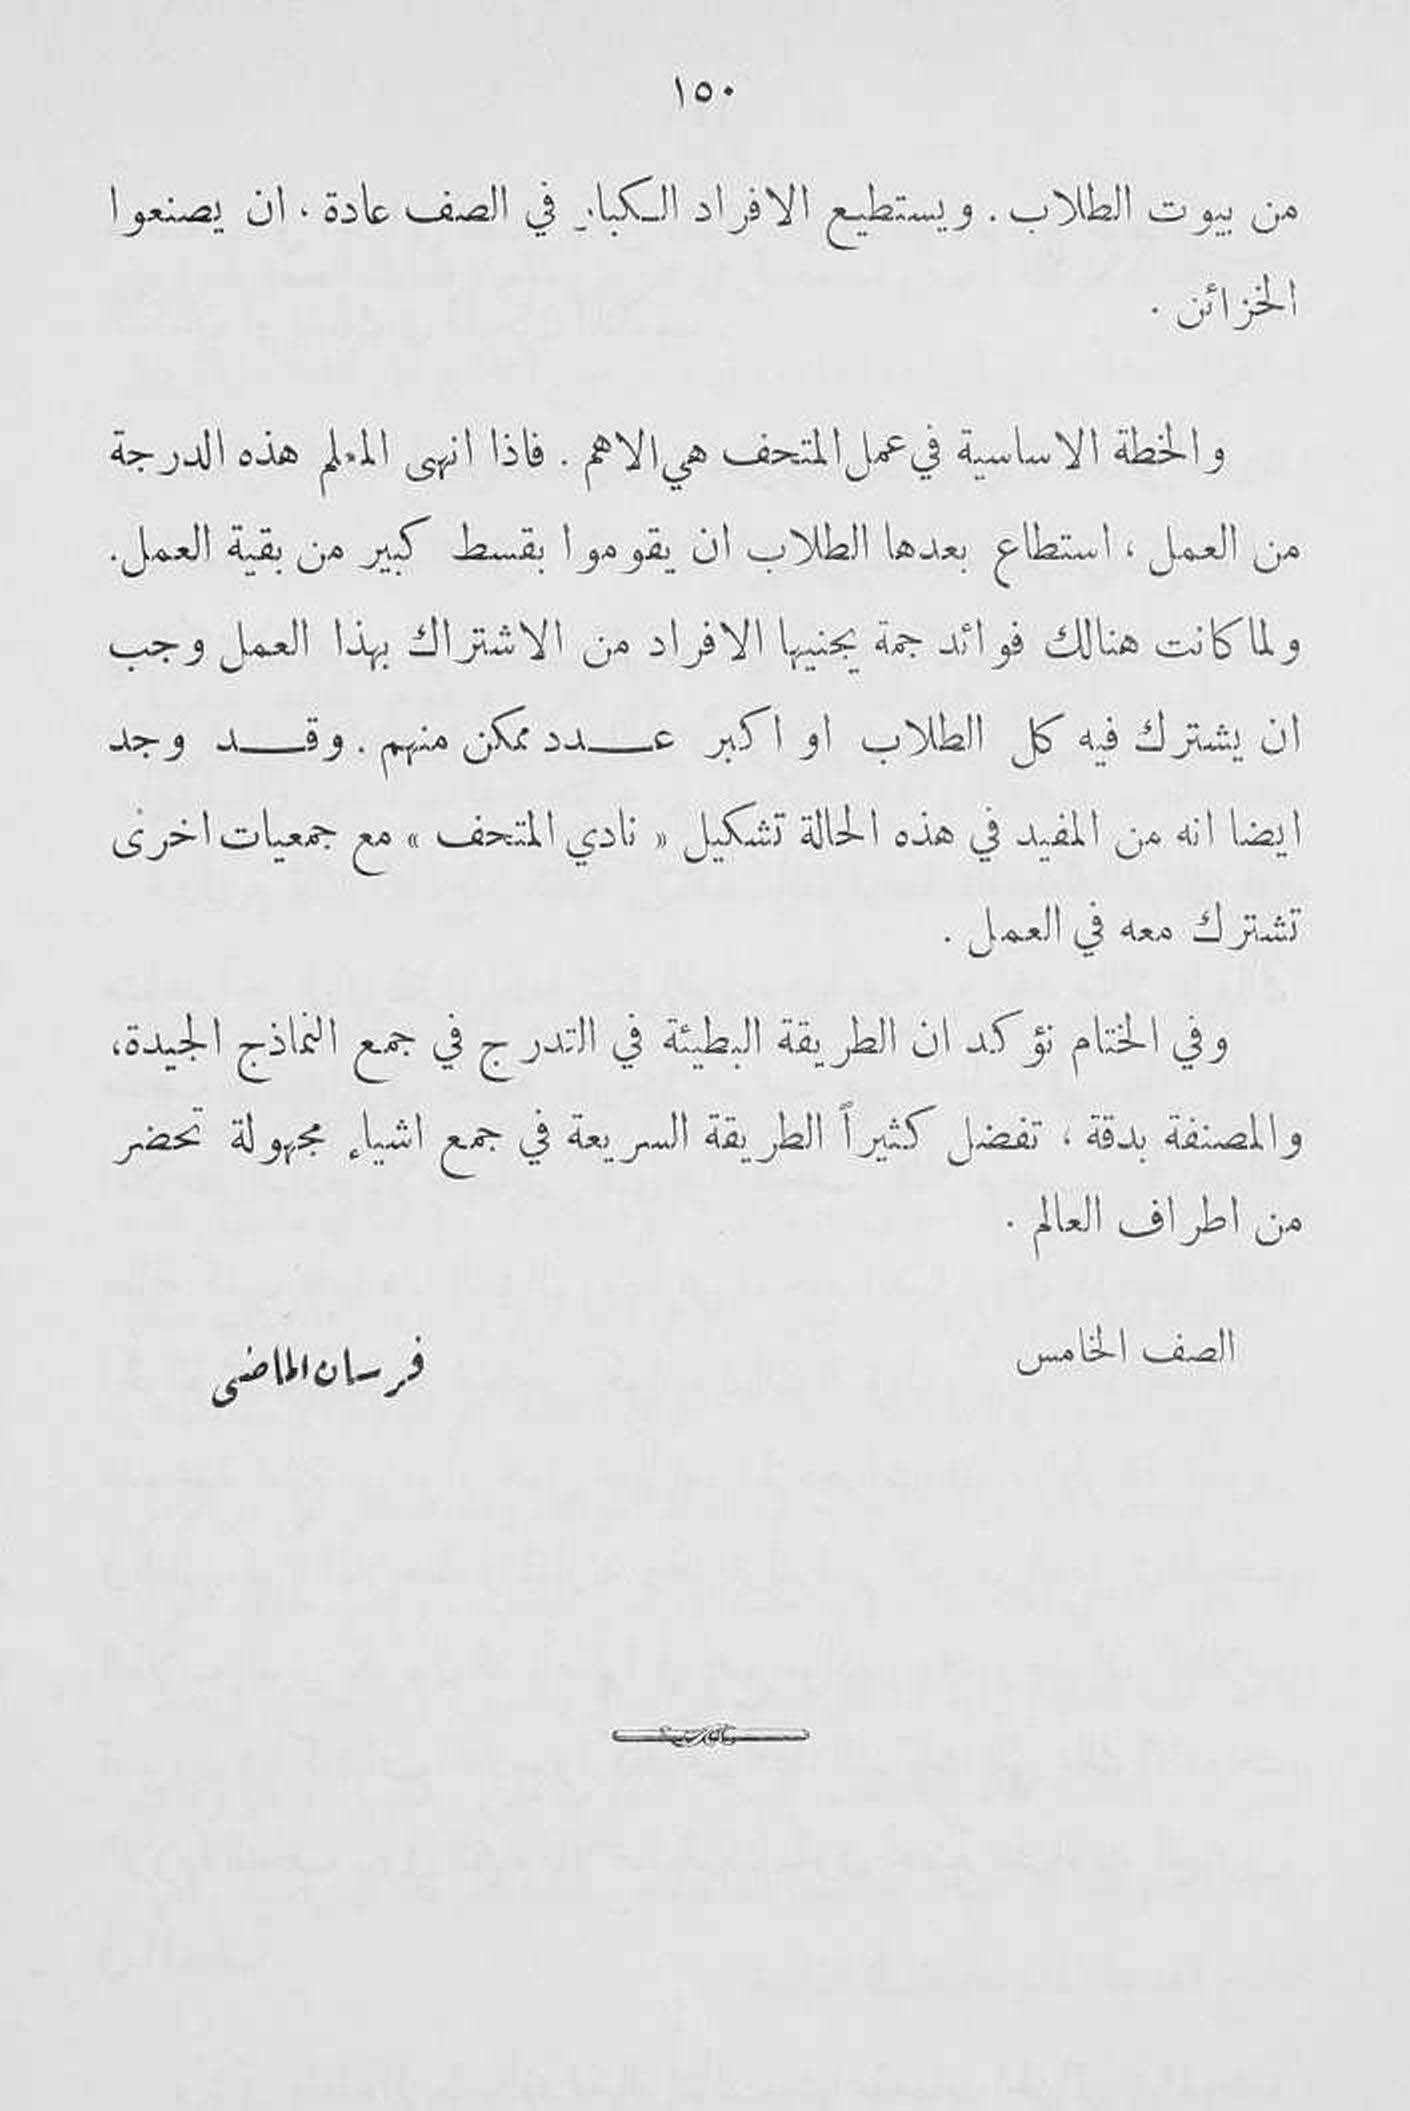 ١٥٠
من بيوت الطلاب . ويستطيع الافراد الكبار في الصف عادة ، ان يصنعوا
الخزائن .
والخطة الاساسية في عمل المتحف هي الاهم . فاذا انهى المعلم هذه الدرجة
من العمل ، استطاع بعدها الطلاب ان يقوموا بقسط كبير من بقية العمل .
ولما كانت هنالك فوائد جمة يجنيها الافراد من الاشتراك بهذا العمل وجب
ان يشترك فيه كل الطلاب او اكبر عـــدد ممكن منهم . وقـــد وجد
ايضا انه من المفيد في هذه الحالة تشكيل « نادي المتحف » مع جمعيات اخرى
تشترك معه في العمل .
وفي الختام نؤكد ان الطريقة البطيئة في التدرج في جمع النماذج الجيدة،
والمصنفة بدقة ، تفضل كثيراً الطريقة السريعة في جمع اشياء مجهولة تحضر
من اطراف العالم .
الصف الخامس
فرسان الماضي